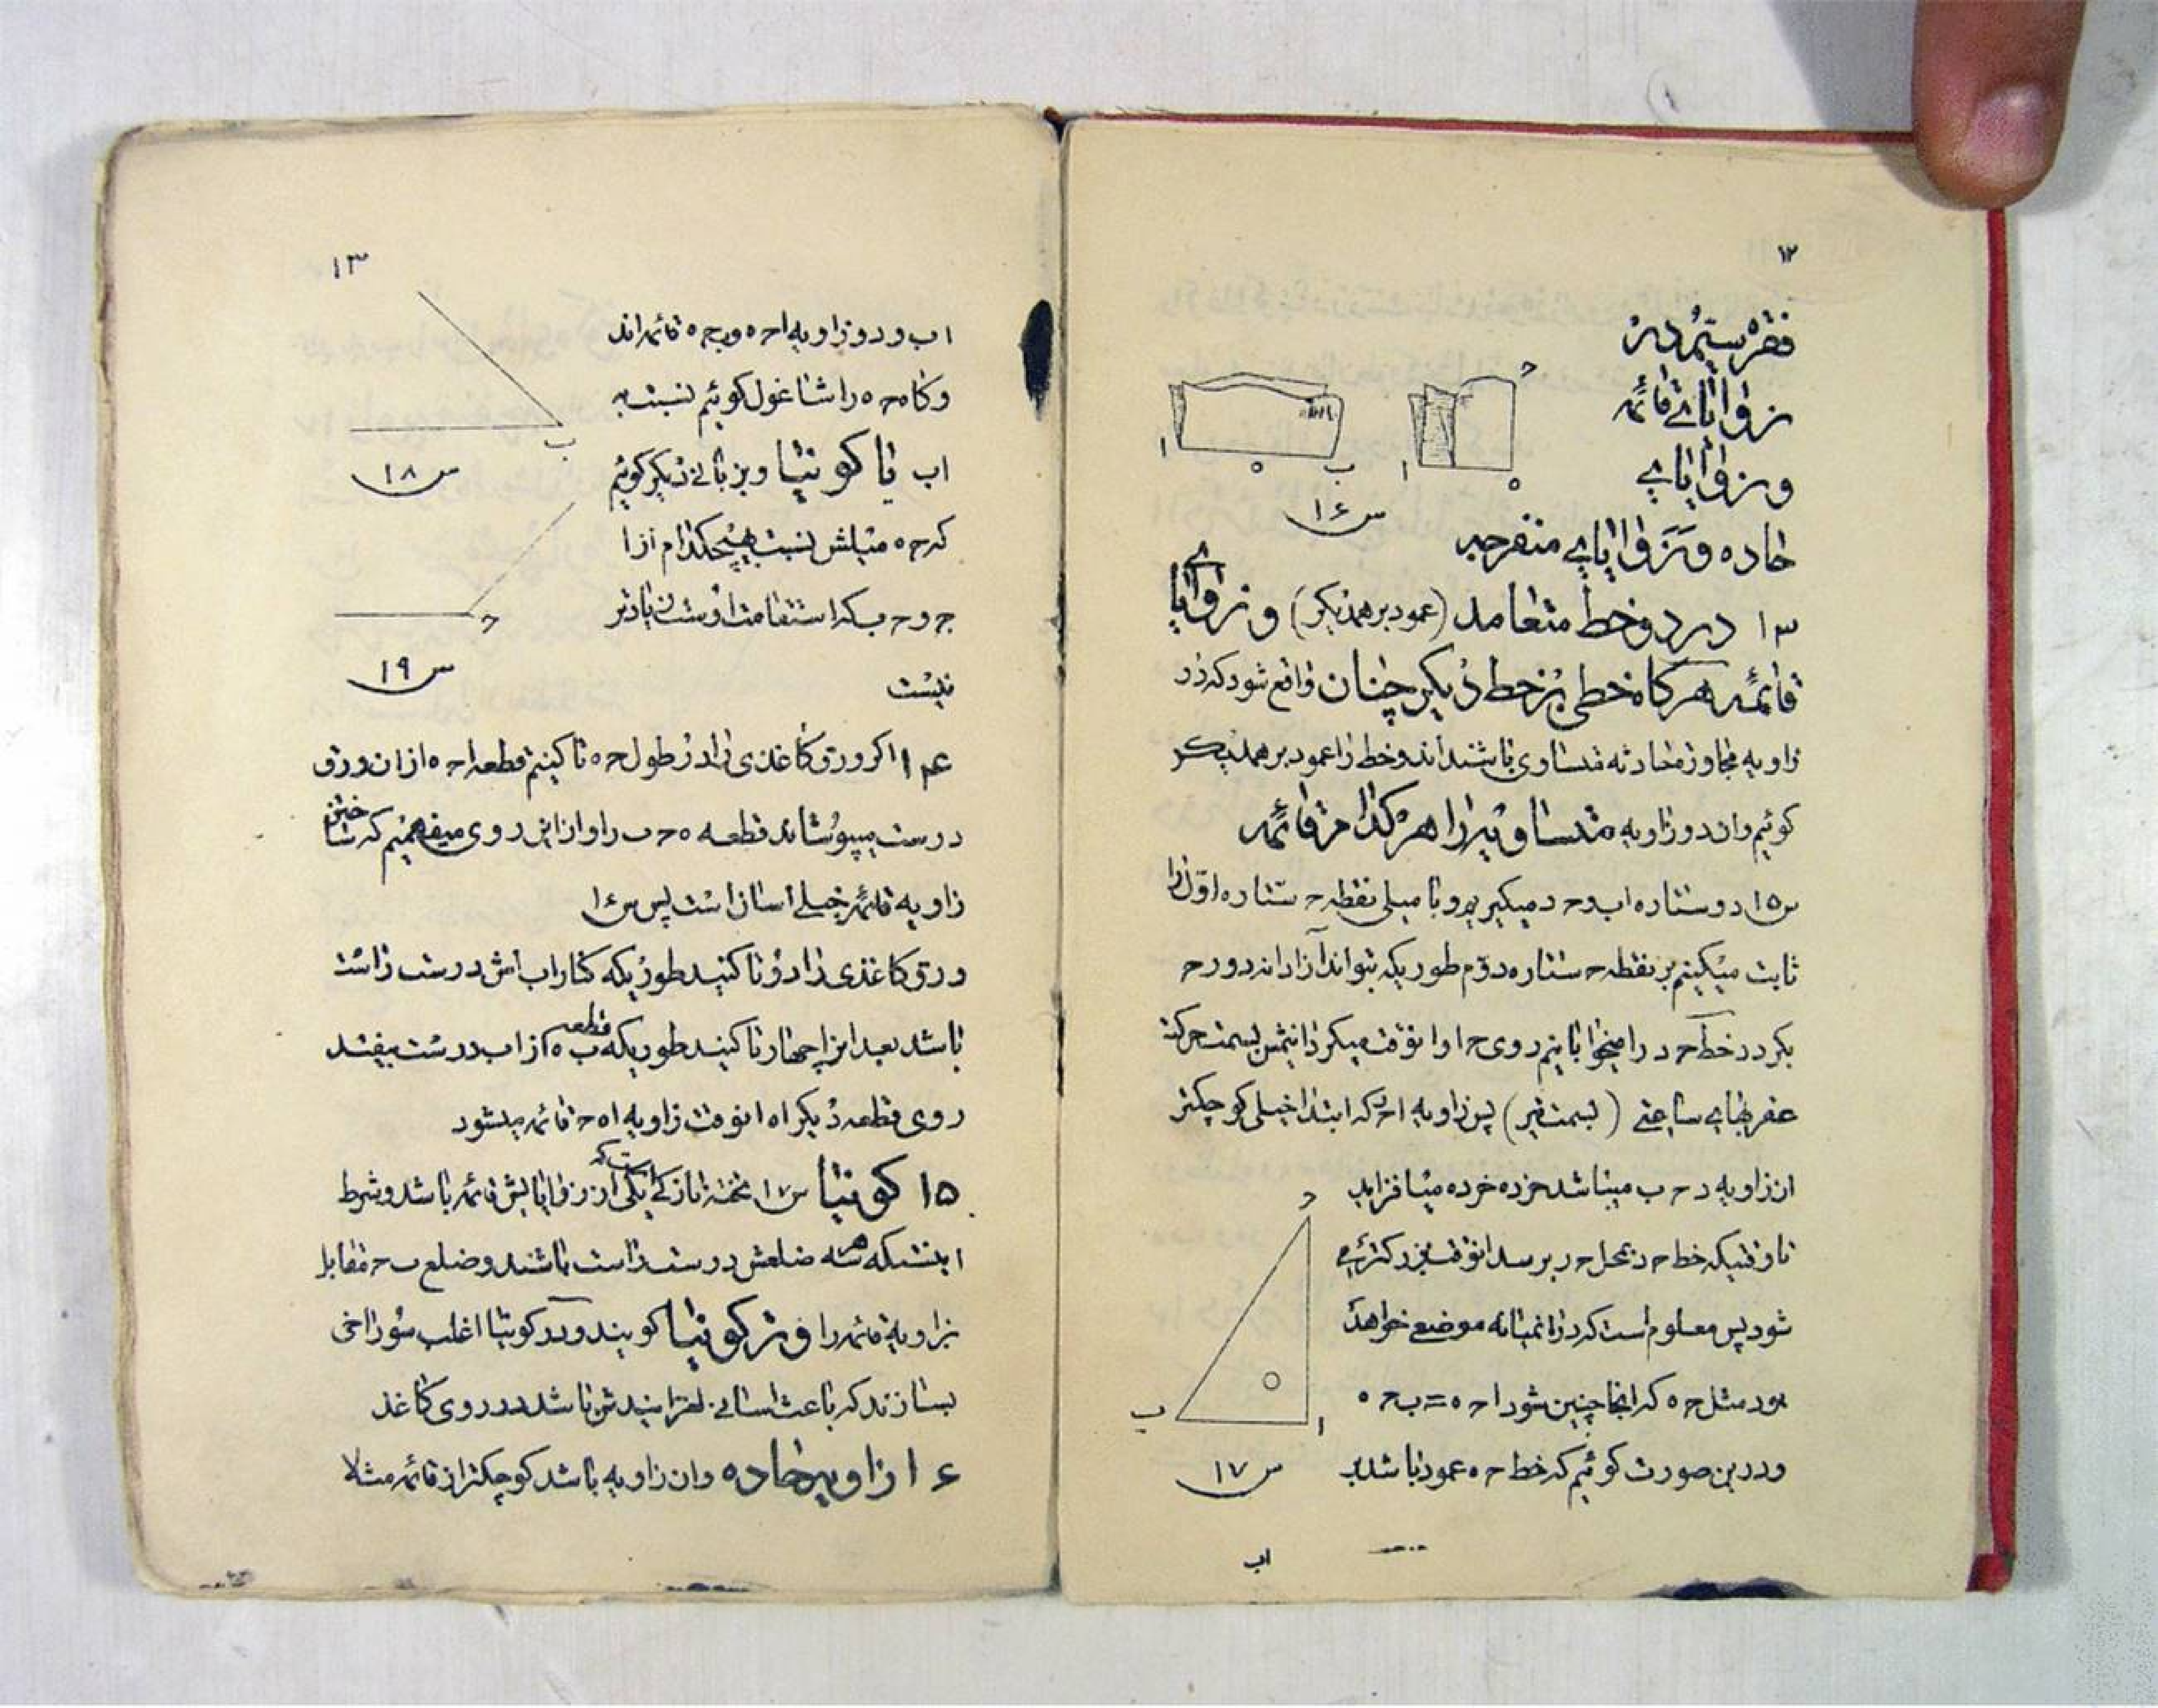 ۱۲
فقره سیم در
زوایای قائمه
و زوایای
حاده و زوایای منفرجه
۱۳ در دو خط متعامد (عمود بر همدیگر) و زوایای
قائمه هرگاه خطی بر خط دیگر چنان واقع شود که دو
زاویه مجاوره حادثه متساوی باشند اندو خط را عمود بر همدیگر
کوئیم و ان دو زاویه متساویه را هر کدام قائمه
س۱۵ دو ستاره اب و ح د میگیریم و با میلی نقطه ح ستاره اوّل را
ثابت میکنیم بر نقطه ح ستاره دوّم طوریکه بتواند آزادانه دور ح
بگردد خط ح د را میخوابانیم روی ح ا و انوقت میگردانیمش بسمت حرکت
عقربهای ساعتی (بسمت تیر) پس زاویه ا ح د که ابتدا خیلی کوچکتر
از زاویه د ح ب میباشد خرده خرده میافزاید
تا وقتیکه خط ح د بمحل ح ر برسد انوقت بزرگتر می
شود پس معلوم است که در اثنمیانه موضعی خواهد
بود مثل ح ه که انجا چنین شود ا ح ه = ب ح ه
و درین صورت کوئیم که خط ح ه عمود باشد بر
اب
ح
ا ه
ا ه ب
س۱۶
ح
ب ا
س۱۷
۱۳
اب و دو زاویه ا ح ه و ب ح ه قائمه اند
و کاه ح ه را شاغول کوئیم نسبت به
اب یا کونیا و بزبانی دیگر کوئیم
که ح ه میلش نسبت بهیچکدام از ا
ح و ح ب که استقامت اوست زیادتر
نیست
۱۴ اکر ورق کاغذی را در طول ح ه تا کنیم قطعه ا ح ه از ان ورق
درست میپوشاند قطعه ه ح ب را و از این روی میفهمیم که ساختن
زاویه قائمه خیلی اسان است پس س۱۶
ورق کاغذی را دو تا کنید طوریکه کنار اب اش درست راست
باشد بعد انرا چهار تا کنید طوریکه قطعه ب ه از اب درست بیفتد
روی قطعه دیگر ا ه انوقت زاویه ا ه ح قائمه میشود
۱۵ کونیا س۱۷ تخته نازکی است که یکی از زوایایش قائمه باشد و شرط
اینستکه هر سه ضلعش درست راست باشند و ضلع ب ح مقابل
بزاویه قائمه را وتر کونیا کویند و در کونیا اغلب سوراخی
بسازند که باعث اسانی لغزانیدنش باشد در روی کاغذ
۱۶ زاویه حاده و ان زاویه باشد کوچکتر از قائمه مثلا
ب
س۱۸
ح
س۱۹